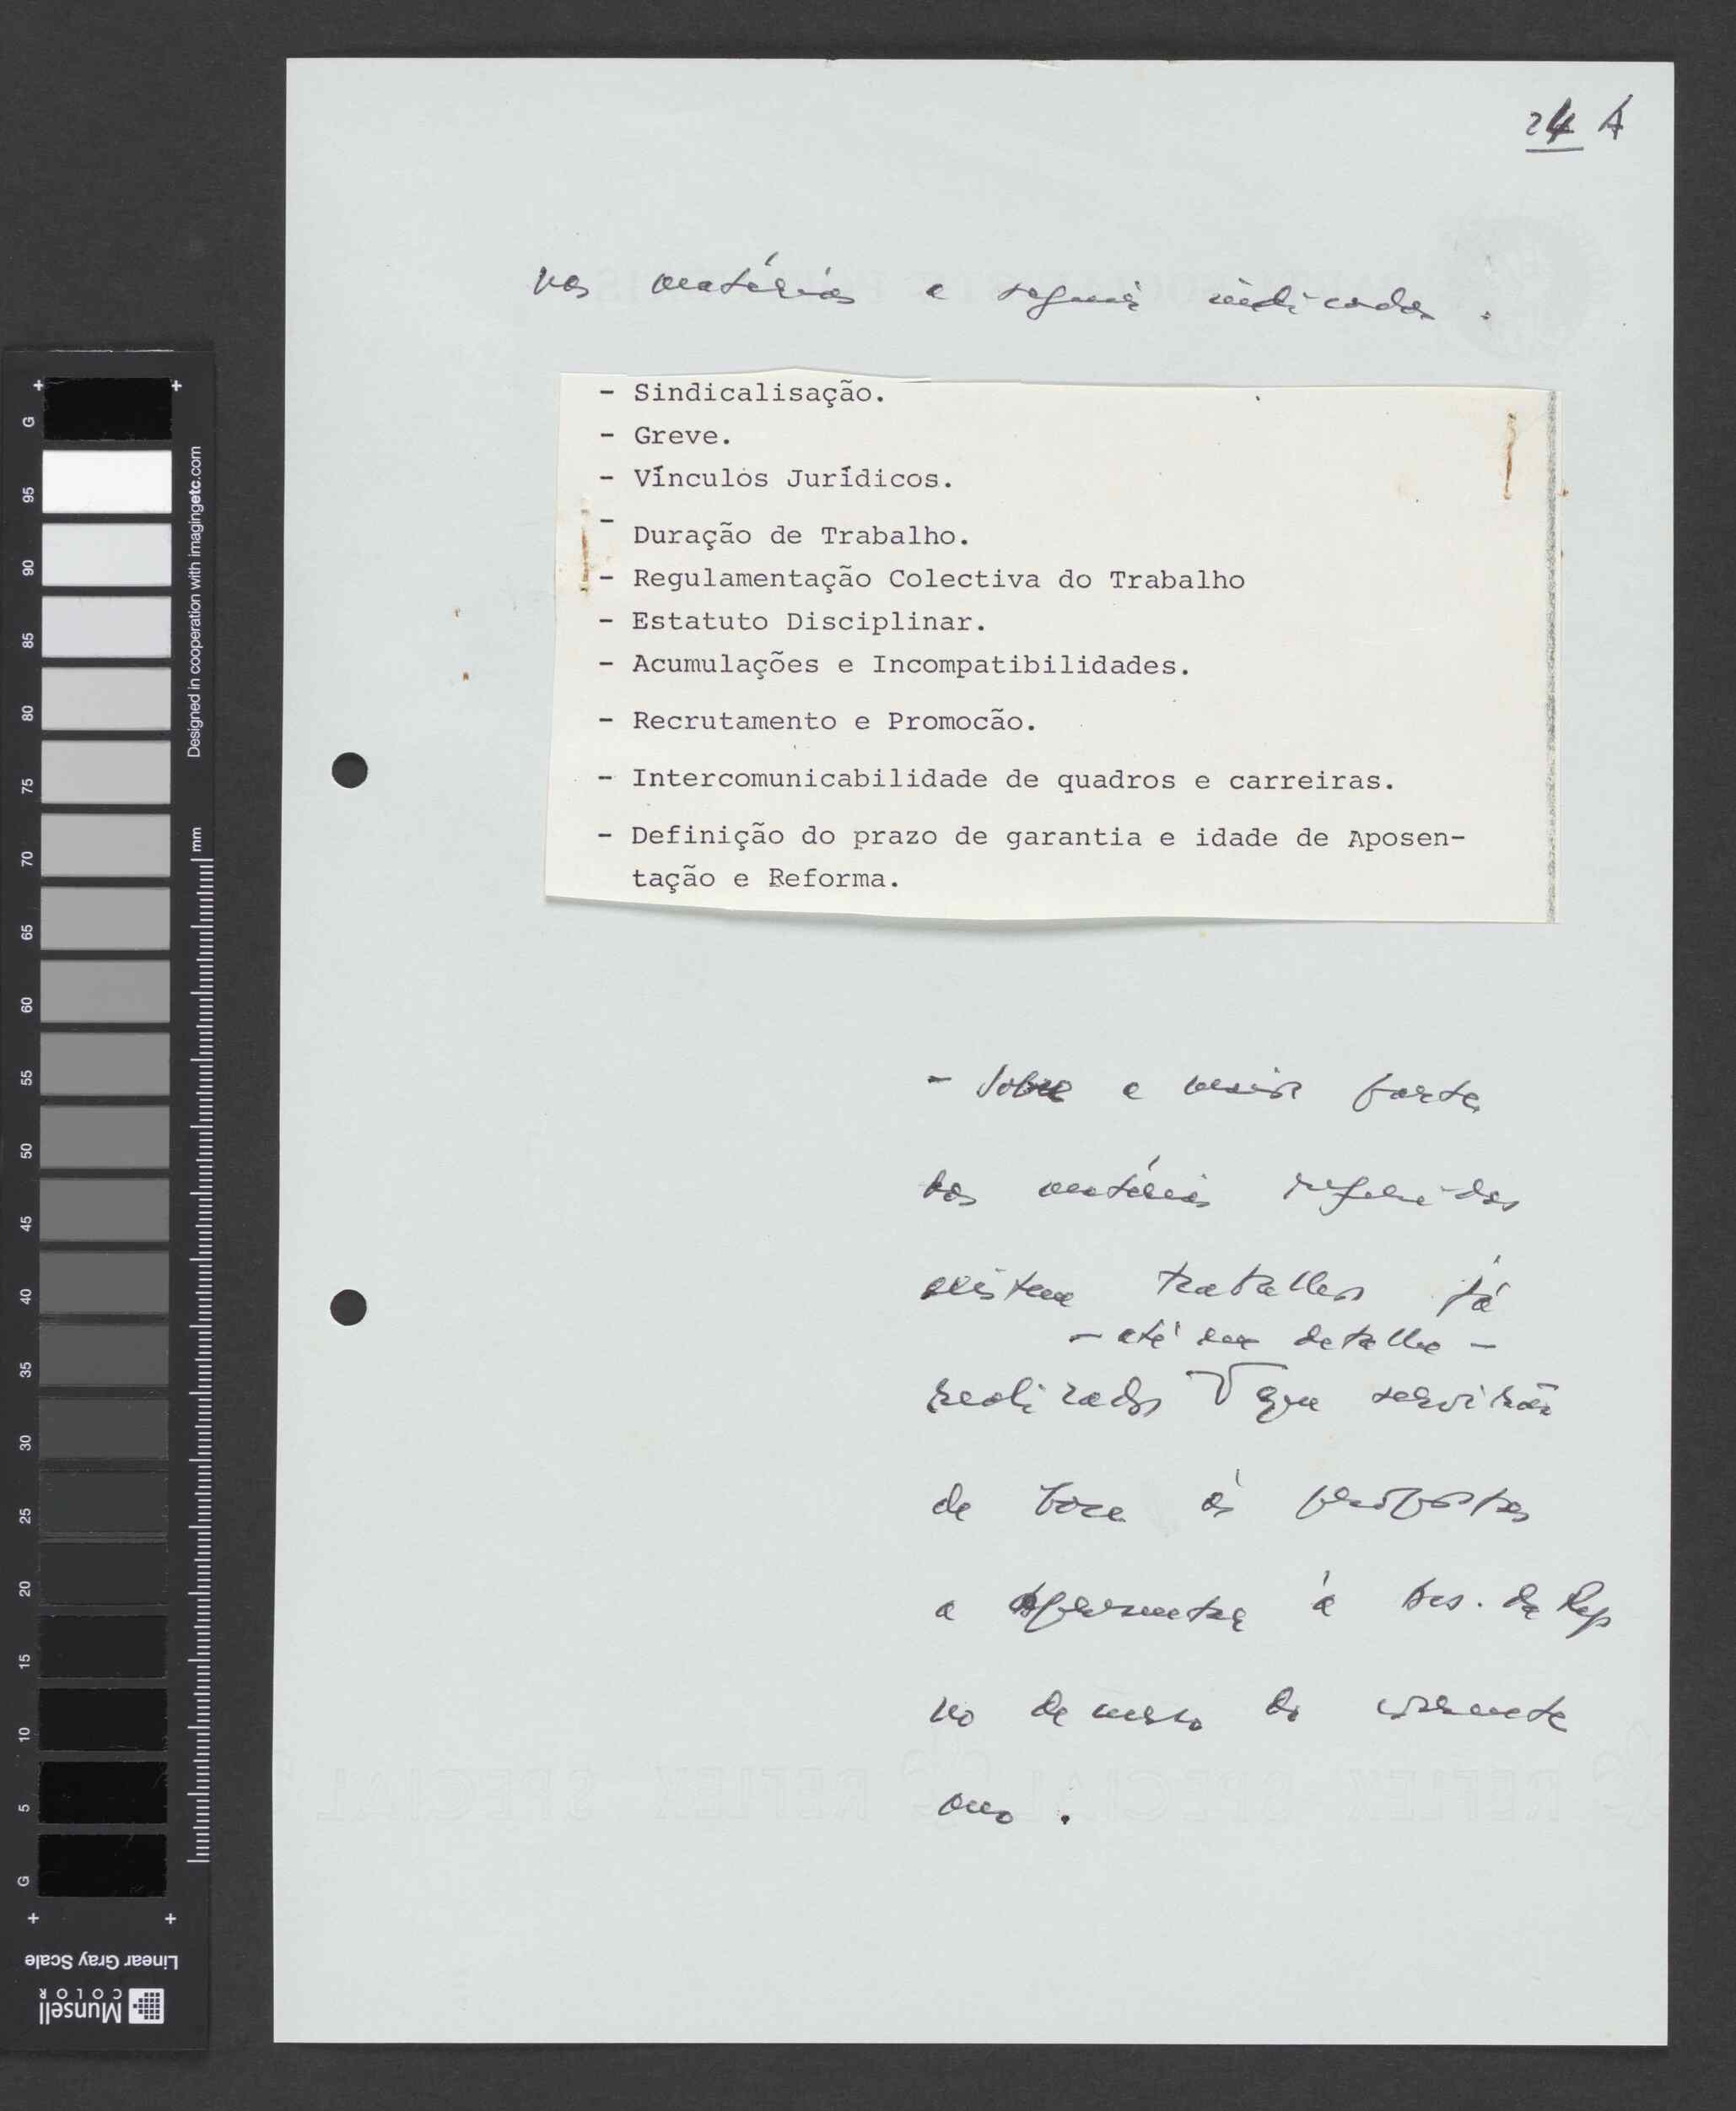 24 A
nas matérias a seguir indicadas.
- Sindicalisação.
- Greve.
- Vínculos Jurídicos.
- Duração de Trabalho.
- Regulamentação Colectiva do Trabalho
- Estatuto Disciplinar.
- Acumulações e Incompatibilidades.
- Recrutamento e Promocão.
- Intercomunicabilidade de quadros e carreiras.
- Definição do prazo de garantia e idade de Aposen-
tação e Reforma.
- Sobre a maior parte
das matérias referidas
existem trabalhos já
- até em detalhe -
realizados que servirão
de base às propostas
a apresentar à Ass. da Rep
no decurso do corrente
ano.
G
95
90
85
80
75
70
65
60
55
50
45
40
35
30
25
20
15
10
5
G
Designed in cooperation with imagingetc.com
mm
Linear Gray Scale
Munsell
COLOR